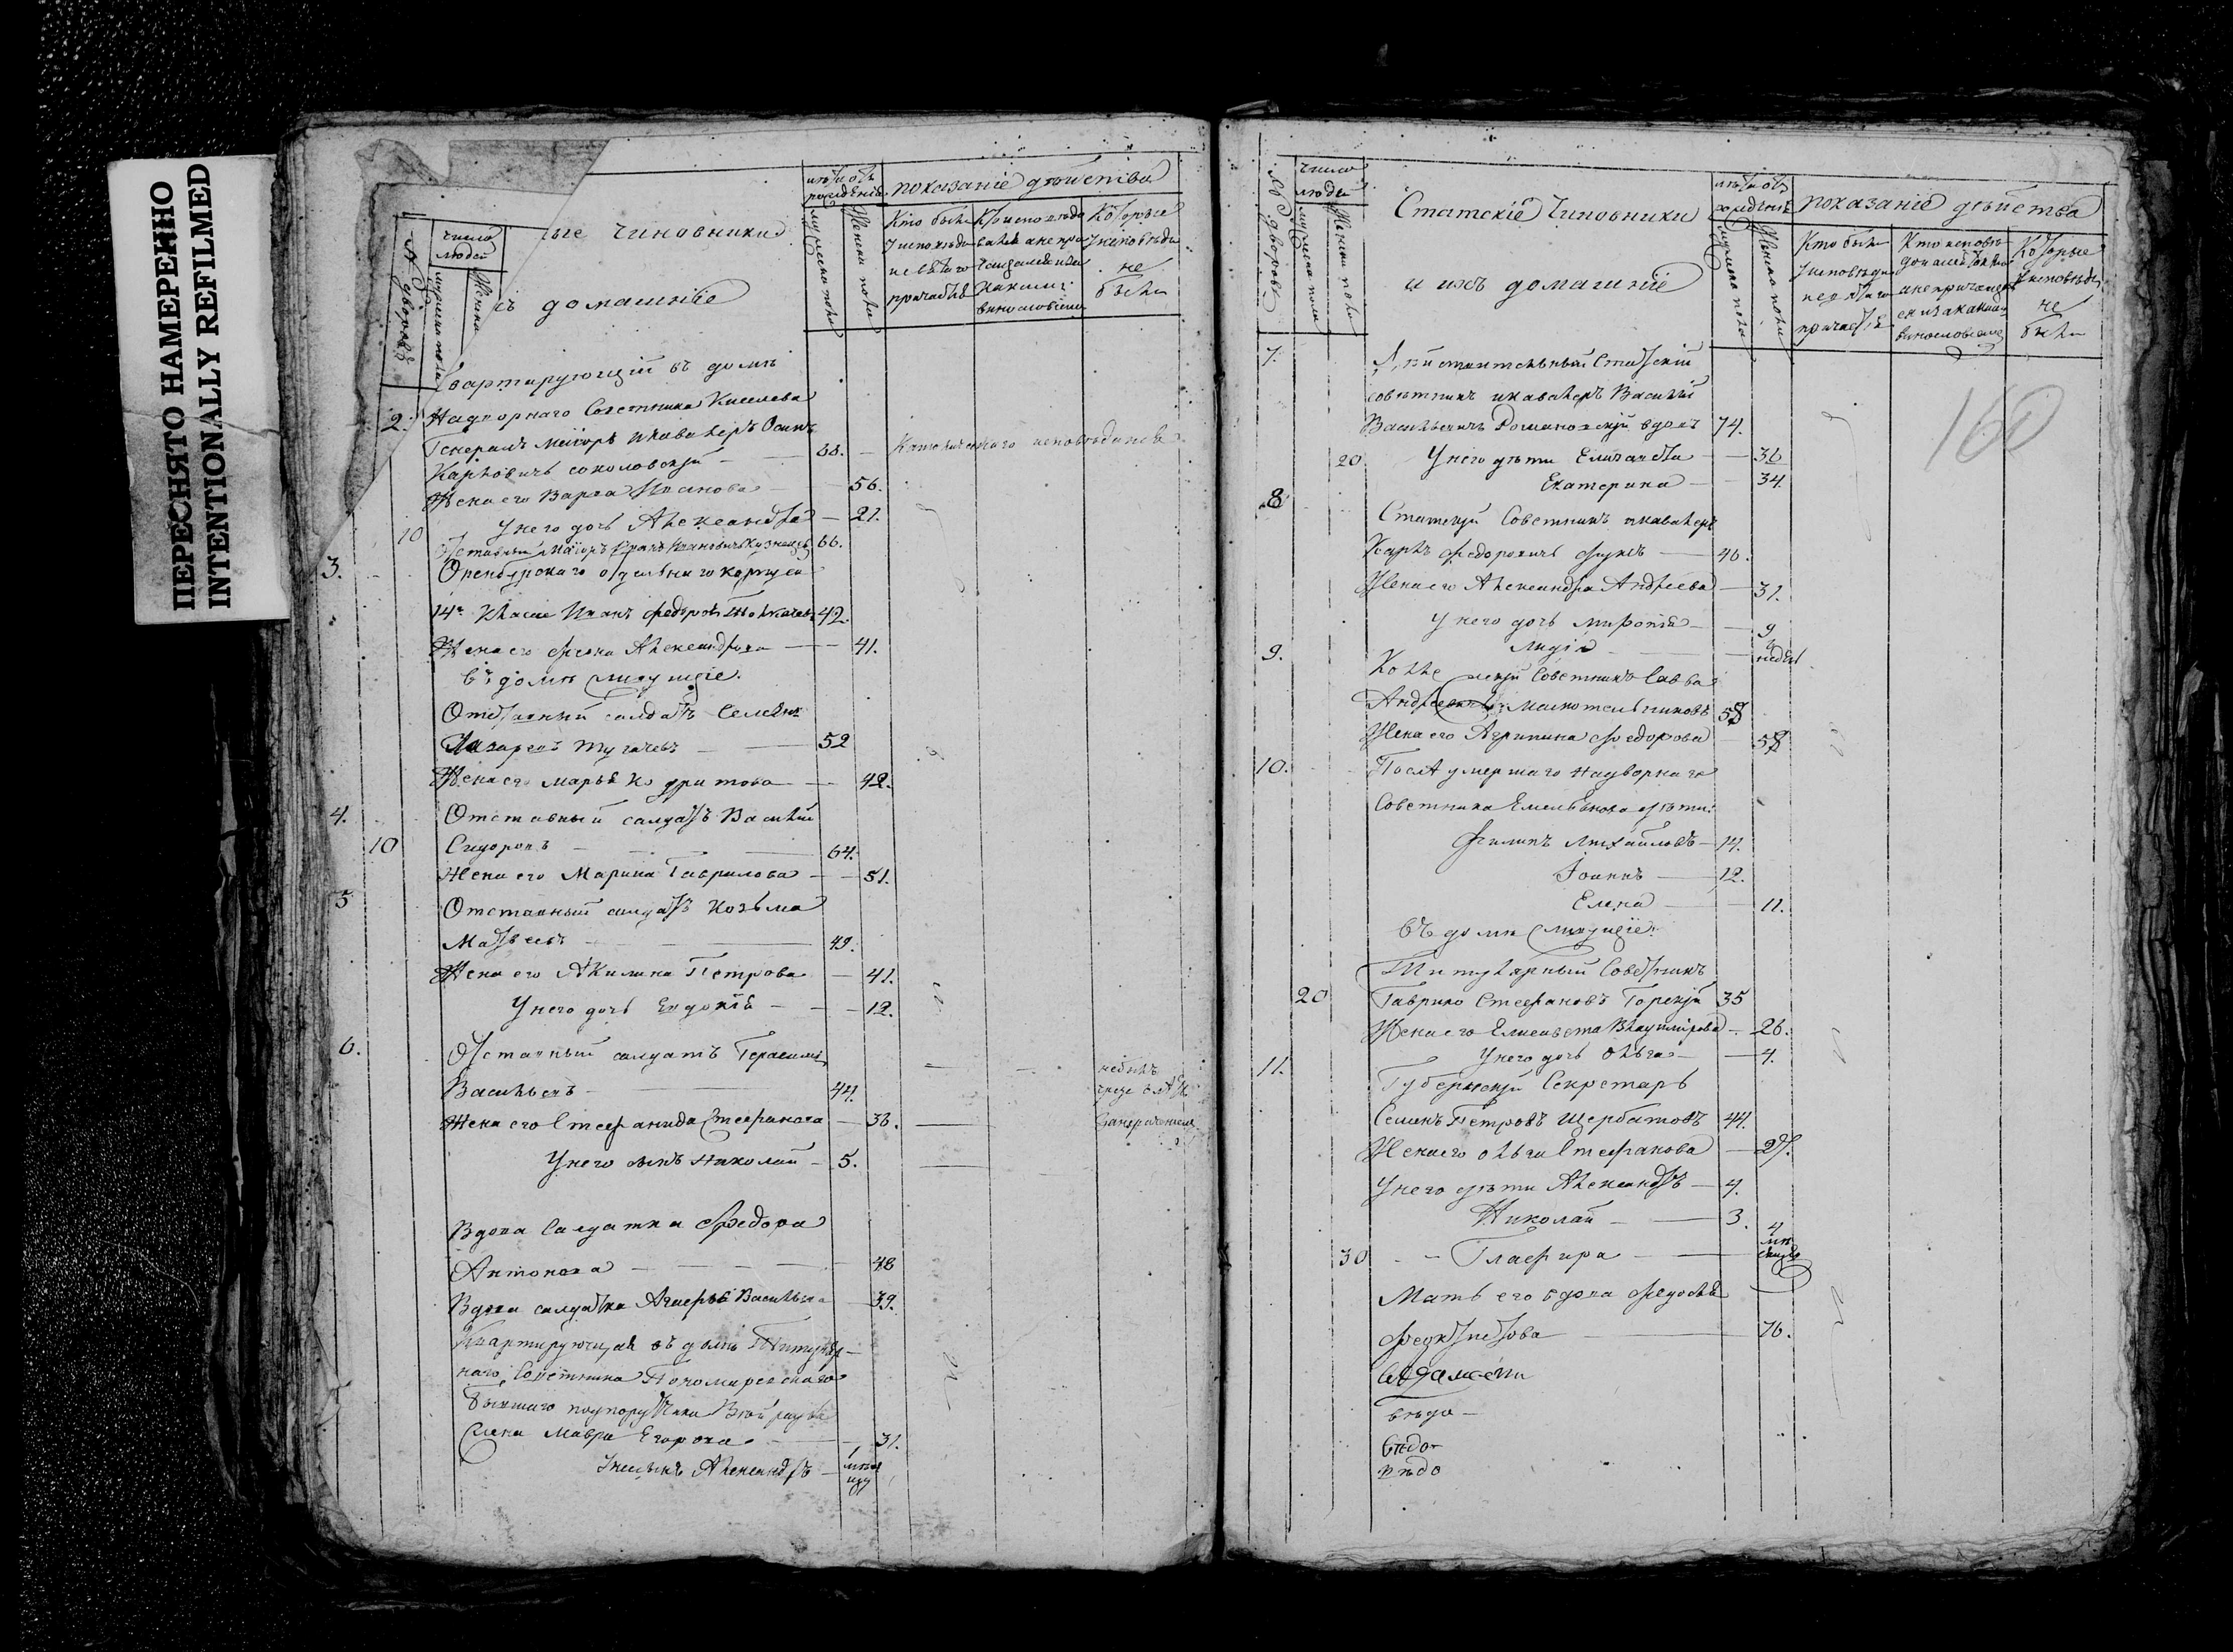 ПЕРЕСНЯТО НАМЕРЕННО
INTENTIONALLY REFILMED
№ дворовъ
число людей
мужеска пола
женска
чиновники
домашніе
лѣтъ отъ рожденія
мужеска пола
женска пола
показаніе дѣйства
Кто были
у исповѣди
и св҃таго
причастія
Которые
у исповѣди
не
были
Квартирующій въ домѣ
2. Надворнаго Советника Киселева
Генералъ Маіоръ и кавалеръ Осипъ
Карловичь соколовскій — 68. — Католическаго исповѣданія
Жена его Варва Иванова — 56.
10 У него дочь Александра — 21.
Отставный Маіоръ Иванъ Ивановичь Кузнецовъ 66.
3. Оренбургскаго отдельнаго корпуса
14го Класса Иванъ Федоровъ Толкачевъ 42.
Жена его Александрова — 41.
въ домѣ живущіе.
Отставный салдатъ Семенъ
Лазаревъ Тугачевъ — 52
Жена его Марья — 42.
4. Отставный салдатъ Василій
10 Сидоровъ — 64.
Жена его Марина Гаврилова — 51.
5 Отставный салдатъ Козьма
Матвеевъ — 49.
Жена его Акилина Петрова — 41.
У него дочь Евдокія — 12.
6. Отставный салдатъ Герасимъ
Васильевъ — 44.
Жена его Стефанида Стефанова — 38.
У него сынъ Николай — 5.
Вдова Салдатка Федора
Антонова — 48
Вдова салдатка Агафья Васильева — 39.
Квартирующая въ домѣ Титуляр-
наго Советника Пономаревскаго
бывшаго подпорутчика
жена Мавра Егорова — 31.
У нея сынъ Александръ — 1 мѣсяцу
№ дворовъ
число
людей
мужеска пола
женска пола
Статскіе Чиновники
и ихъ домашніе
лѣтъ отъ рожденія
мужеска пола
женска пола
показаніе дѣйства
Кто были
у исповѣди
и св҃таго
причастія
Которые
у исповѣди
не
были
160
7. Дѣйствительный Статскій
советникъ и кавалеръ Василій
Васильевичъ Романовскій вдовъ 74.
20 У него дѣти Елизавета — 36
Екатерина — 34.
8. Статскій Советникъ и кавалеръ
Карлъ Федоровичь Фуксъ — 46.
Жена его Александра Андреева — 31.
У него дочь — 9
Лидія — недел
9. Коллежскій Советникъ Савва
Андреевичь Москотельниковъ 58
Жена его Агрипина Федорова — 58
10. Послѣ умершаго Надворнаго
Советника Емельянова дѣти:
Филипъ Михайловъ — 14.
Іоаннъ — 12.
Елена — 11.
въ домѣ живущіе.
Титулярный Советникъ
20 Гаврило Стефановъ Горскій 35
Жена его Елисавета Владимірова — 26.
У него дочь Ольга — 4.
11. Губернскій Секретарь
Семенъ Петровъ Щербатовъ 44.
Жена его Ольга Стефанова — 27.
У него дѣти Александръ — 4.
Николай — 3.
30 Глафира — 4
Мать его вдова Федосья
Федоктистова — 76.